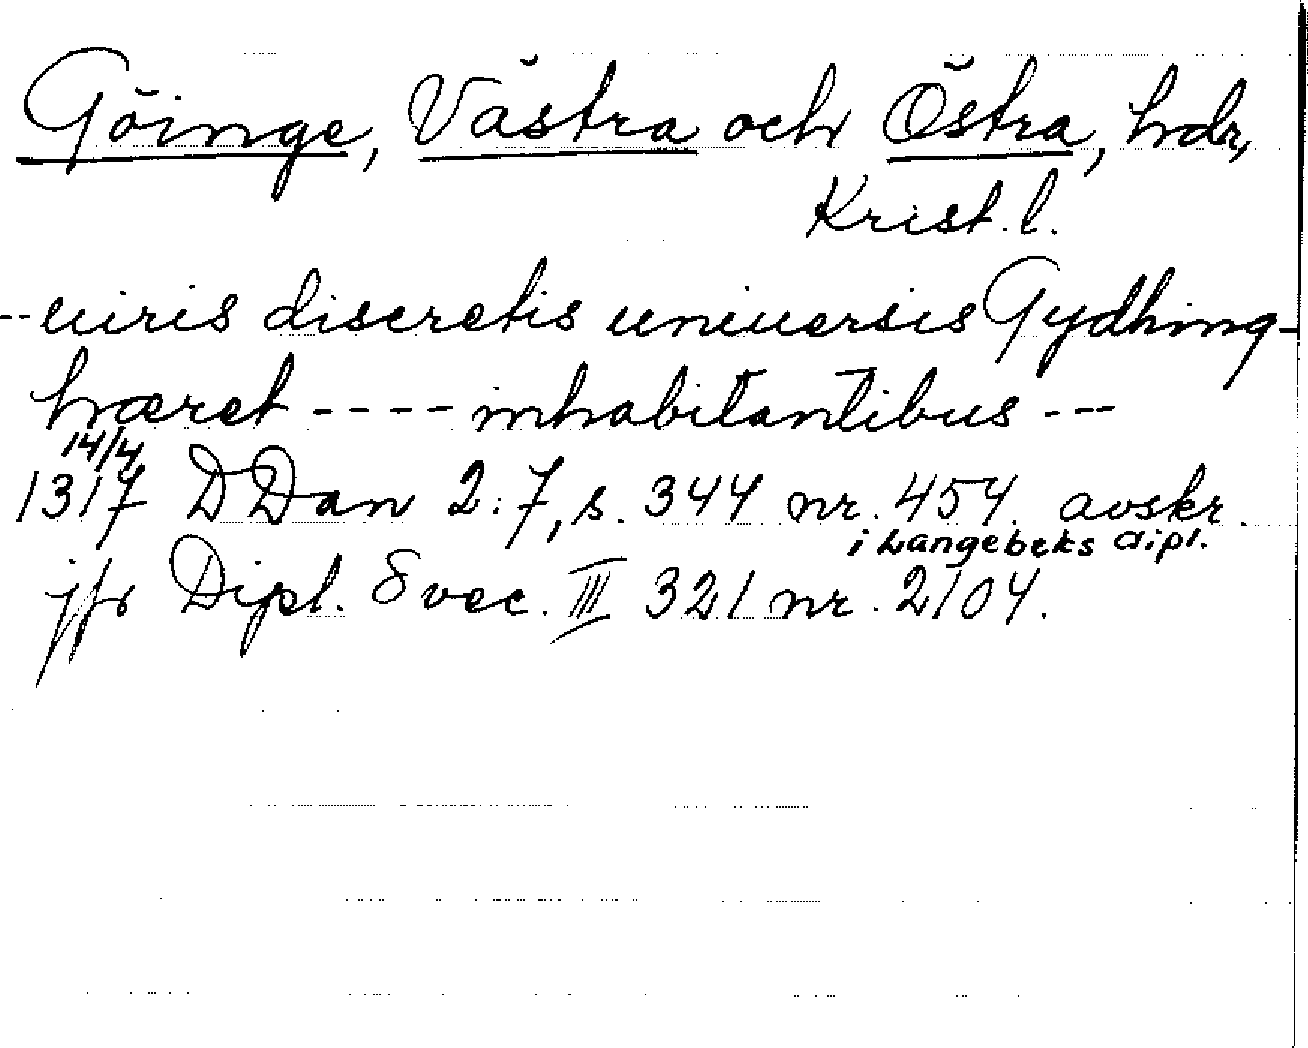 Göinge, Västra och Östra, hdr,
Krist. l.
-- uiris discretis uniuersis Gydhing-
hæret ---- inhabitantibus ---
14/4
1317 DDan 2:7, s. 344 nr. 454. avskr.
i Langebeks dipl.
jfr Dipl. Svec. III 321 nr. 2104.